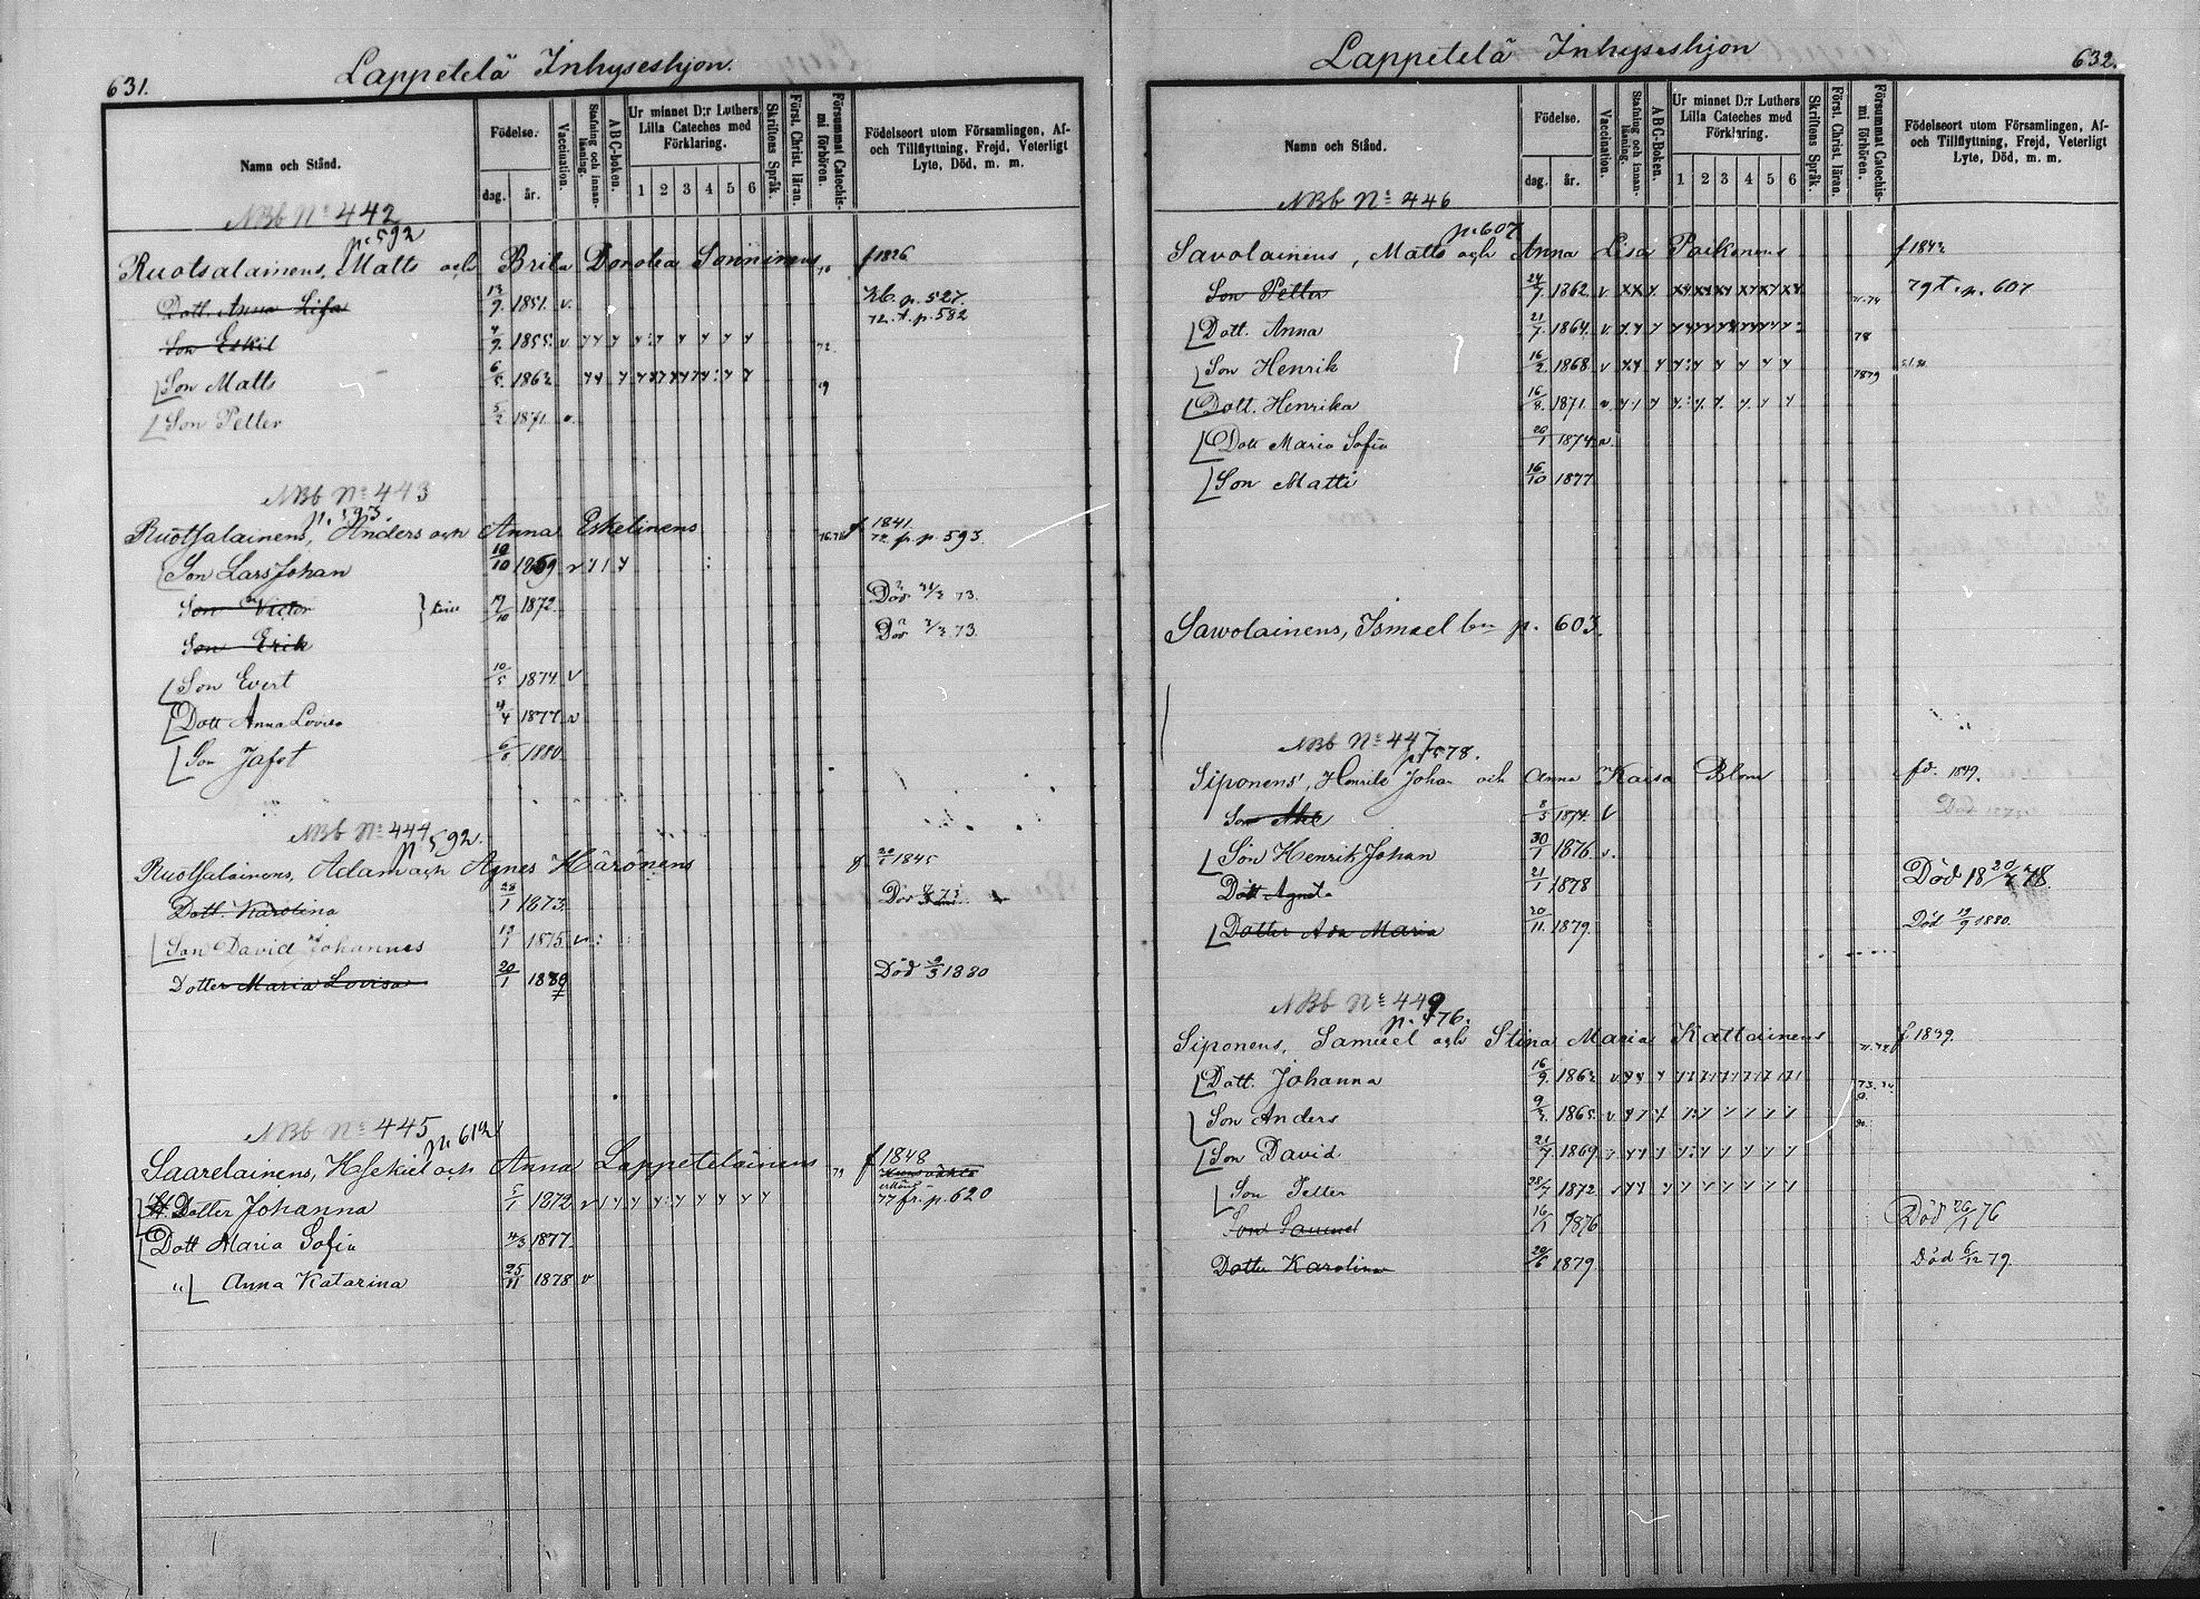 631.
Lappetelä Inhyseshjon.
Namn och Stånd.
Födelse.
dag. år.
Vaccination.
Stafning och innanläsning.
A B C-boken.
Ur minnet D:r Luthers Lilla Cateches med Förklaring.
1 2 3 4 5 6
Skriftens Språk.
Först. Christ. läran.
Försummat Catechismi förhören.
Födelseort utom Församlingen, Af- och Tillflyttning, Frejd, Veterligt Lyte, Död, m. m.
NBb No 442
p. 592
Ruotsalainens, Matts och Brita Dorotea Sonninens f 1826
Dott. Anna Lisa 13/9. 1851. v. Kb. p. 527.
72. t. p. 582
Son Eskil 4/9. 1855. v 72.
Son Matts 6/5. 1862 79
Son Petter 5/2. 1871.
NBb No 443
p. 593
Ruotsalainens, Anders och Anna Eskelinens f 1841
72. fr. p. 593.
Son Lars Johan 10/10 1869 v
Son Victor 19/10 1872 Död 73.
Son Erik Död 73.
Son Evert 10/5 1874 v
Dott Anna Lovisa 4/4 1877 v
Son Jafet 6/8 1880
NBb No 444
p. 592.
Ruotsalainens, Adam och Agnes Härönens f 20/1 1845
Dott. Karolina 28/1 1873. Död 73
Son David Johannes 1875 v
Dotter Maria Lovisa 20/1 1880 Död 9/3 1880
NBb No 445
p. 612
Saarelainens, Hesekiel och Anna Lappeteläinens 79 f 1848
77 fr. p. 620
Dotter Johanna 5/1 1872 v
Dott Maria Sofia 4/3 1877
" Anna Katarina 25/11 1878 v
Lappetelä Inhyseshjon
632.
Namn och Stånd.
Födelse.
dag. år.
Vaccination.
Stafning och innanläsning.
A B C-Boken.
Ur minnet D:r Luthers Lilla Cateches med Förklaring.
1 2 3 4 5 6
Skriftens Språk.
Först. Christ. läran.
Försummat Catechismi förhören.
Födelseort utom Församlingen, Af- och Tillflyttning, Frejd, Veterligt Lyte, Död, m. m.
NBb No 446
p. 607
Savolainens, Matts och Anna Lisa Paikonens f 1842
Son Petter 24/9. 1862. v 71.74 79 t. p. 607
Dott. Anna 21/7. 1864. v. 78
Son Henrik 16/2 1868 v 1879
Dott. Henrika 16/8. 1871. v.
Dott Maria Sofia 20/1 1874 v.
Son Matti 16/10 1877
Sawolainens, Ismael p. 603.
NBb No 447
p. 578.
Siponens, Henrik Johan och Anna Kaisa Blom fd. 1849.
Son Abel 8/3 1874. v
Son Henrik Johan 30/1 1876. v.
Dott Agneta 21/1 1878 Död 18 20/7 78.
Dotter Ada Maria 20/11. 1879. Död 19/9 1880.
NBb No 449
p. 476.
Siponens, Samuel och Stina Maria Kattainens f. 1839.
Dott. Johanna 16/9. 1862 v
Son Anders 9/3. 1865. v
Son David 21/7 1869
Son Petter 28/7 1872
Son Samuel 16/1 1876 Död 26/1 76
Dotter Karolina 20/6 1879 Död 6/12 79.